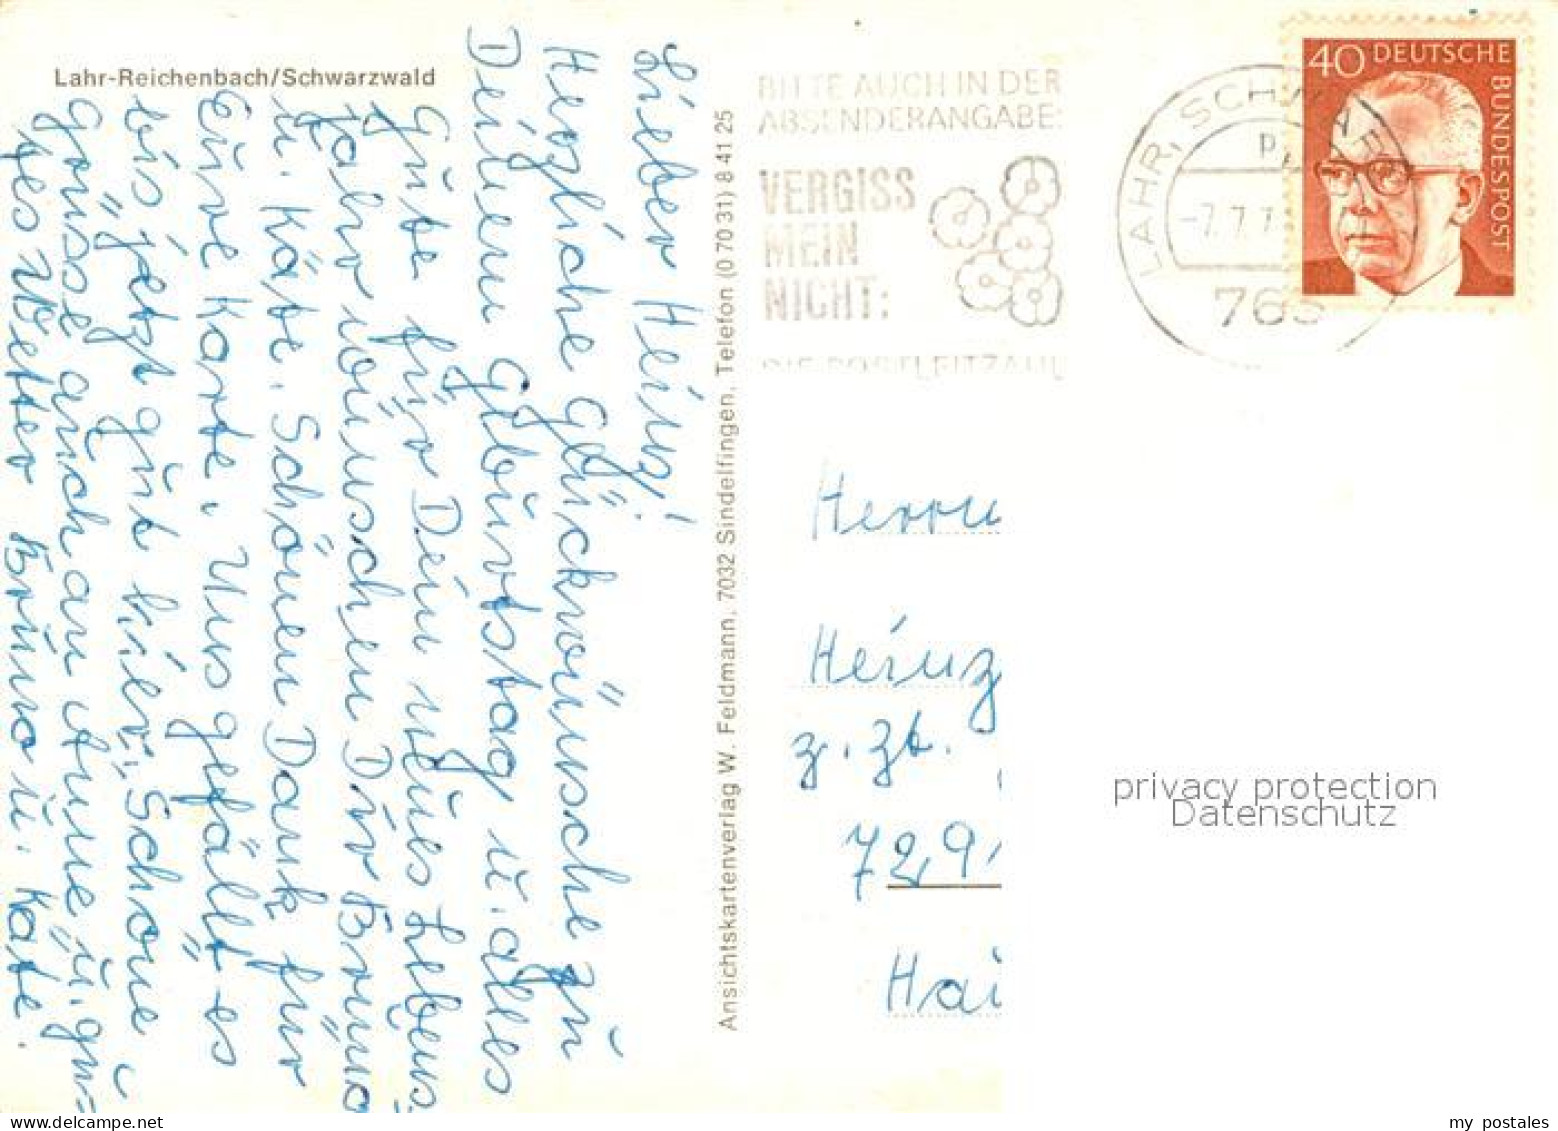 Lahr-Reichenbach/Schwarzwald
Lieber Heinz!
Herzliche Glückwünsche zu
Deinem Geburtstag u. alles
Gute für Dein neues Lebens
Jahr wünschen Dir Bruno
u. Käte. Schönen Dank für
Eure Karte. Uns gefällt es
bis jetzt gut hier. Schöne
Grüsse auch an Anne, u. gu=
tes Wetter Bruno u. Käte.
Ansichtskartenverlag W. Feldmann, 7032 Sindelfingen, Telefon (0 70 31) 8 41 25
BITTE AUCH IN DER
ABSENDERANGABE:
VERGISS
MEIN
NICHT:
DIE POSTLEITZAHL
LAHR, SCHWAR
-7.7.7
763
40 DEUTSCHE
BUNDESPOST
Herrn
Heinz
z. Zt.
72,9
Hai
privacy protection
Datenschutz
my postales